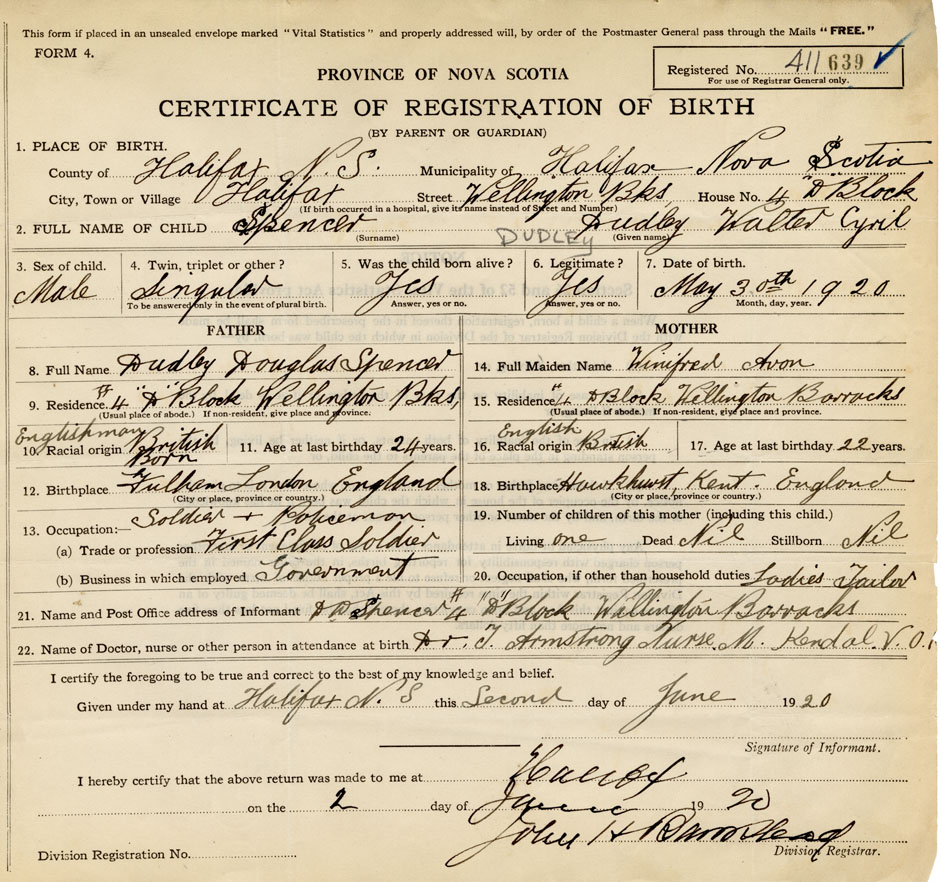 This form if placed in an unsealed envelope marked "Vital Statistics" and properly addressed will, by order of the Postmaster General pass through the Mails "FREE."
FORM 4.
Registered No. 411 639
For use of Registrar General only.
PROVINCE OF NOVA SCOTIA
CERTIFICATE OF REGISTRATION OF BIRTH
(BY PARENT OR GUARDIAN)
1. PLACE OF BIRTH.
County of Halifax N. S. Municipality of Halifax Nova Scotia
City, Town or Village Halifax Street Wellington Bks House No. 4 "D" Block
(If birth occurred in a hospital, give its name instead of Street and Number)
2. FULL NAME OF CHILD Spencer Dudley Walter Cyril
(Surname) DUDLEY (Given name)
3. Sex of child. 4. Twin, triplet or other? 5. Was the child born alive? 6. Legitimate? 7. Date of birth.
Male Singular Yes Yes May 30th 1920
To be answered only in the event of plural birth. Answer, yes or no. Answer, yes or no. Month, day, year.
FATHER MOTHER
8. Full Name Dudley Douglas Spencer 14. Full Maiden Name Winifred Avon
9. Residence. # 4 "D" Block Wellington Bks, 15. Residence # 4 D Block Wellington Barracks
(Usual place of abode.) If non-resident, give place and province. (Usual place of abode.) If non-resident, give place and province.
Englishman English
10. Racial origin British Born 11. Age at last birthday 24 years. 16. Racial origin British 17. Age at last birthday 22 years.
12. Birthplace Fulham London England 18. Birthplace Hawkhurst, Kent. England
(City or place, province or country.) (City or place, province or country.)
13. Occupation:— Soldier + Policeman 19. Number of children of this mother (including this child.)
(a) Trade or profession First Class Soldier Living one Dead Nil Stillborn Nil
(b) Business in which employed Government 20. Occupation, if other than household duties Ladies Tailor
21. Name and Post Office address of Informant D D Spencer # 4 "D" Block Wellington Barracks
22. Name of Doctor, nurse or other person in attendance at birth Dr. T. Armstrong Nurse M. Kendal V. O.
I certify the foregoing to be true and correct to the best of my knowledge and belief.
Given under my hand at Halifax N. S this Second day of June 1920
Signature of Informant.
I hereby certify that the above return was made to me at Halifax
on the 2 day of June 1920
John H
Division Registration No. Division Registrar.